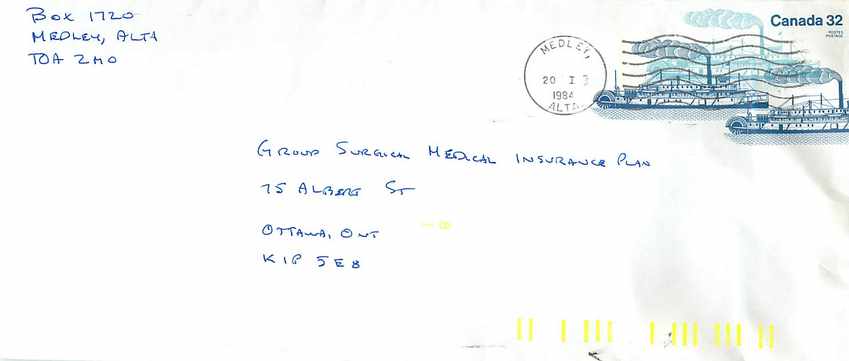 Box 1720
MEDLEY, ALTA
T0A 2M0
Canada 32
POSTES
POSTAGE
MEDLEY,
20 I
1984
ALTA.
GROUP SURGICAL MEDICAL INSURANCE PLAN
75 ALBERT ST
OTTAWA, ONT
K1P 5E8